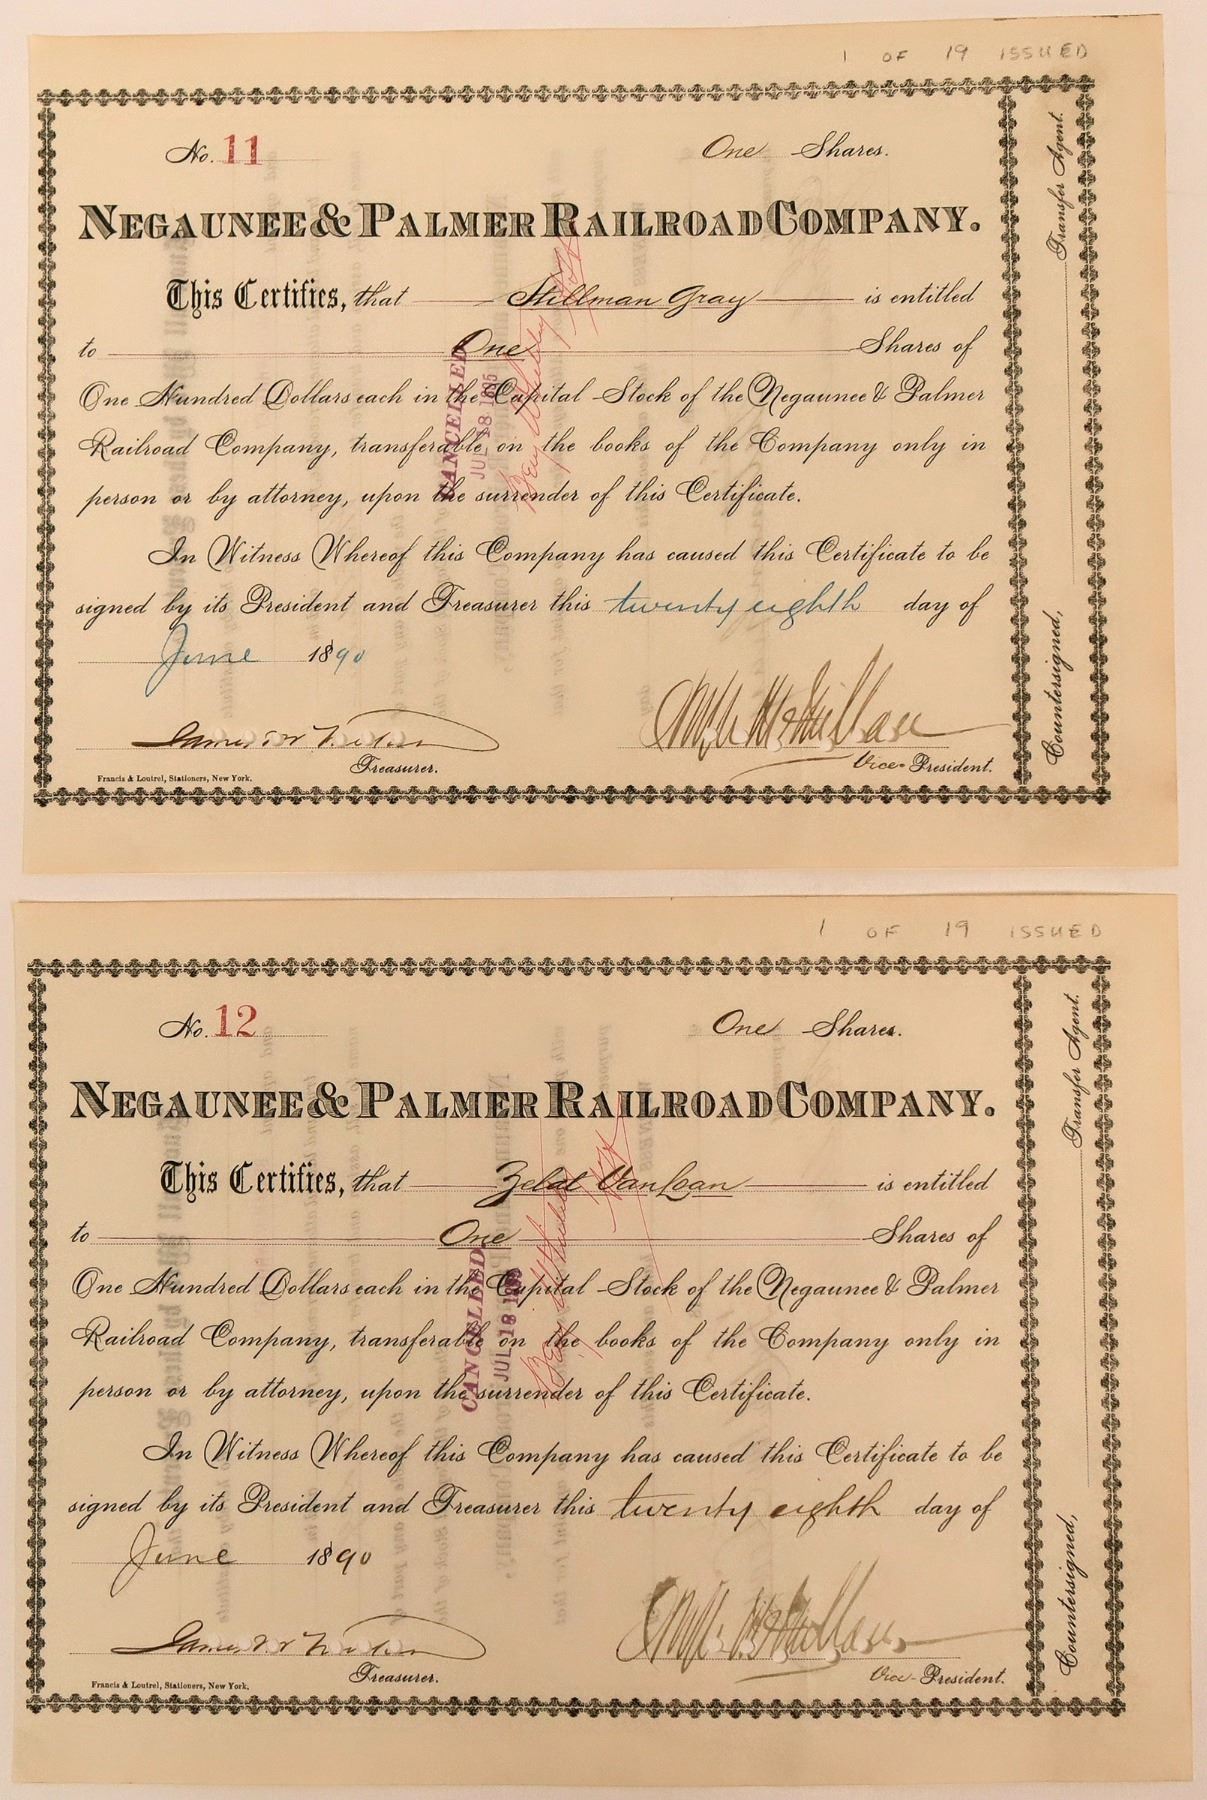 1 OF 19 ISSUED
No. 11 One Shares.
NEGAUNEE & PALMER RAILROAD COMPANY.
This Certifies, that Stillman Gray is entitled
to One Shares of
One Hundred Dollars each in the Capital Stock of the Negaunee & Palmer
Railroad Company, transferable on the books of the Company only in
person or by attorney, upon the surrender of this Certificate.
In Witness Whereof this Company has caused this Certificate to be
signed by its President and Treasurer this twenty eighth day of
June 1890
Treasurer.
Vice-President.
Francis & Loutrel, Stationers, New York.
CANCELLED
JUL 18 1895
Transfer Agent.
Countersigned,
1 OF 19 ISSUED
No. 12 One Shares.
NEGAUNEE & PALMER RAILROAD COMPANY.
This Certifies, that is entitled
to One Shares of
One Hundred Dollars each in the Capital Stock of the Negaunee & Palmer
Railroad Company, transferable on the books of the Company only in
person or by attorney, upon the surrender of this Certificate.
In Witness Whereof this Company has caused this Certificate to be
signed by its President and Treasurer this twenty eighth day of
June 1890
Treasurer.
Vice-President.
Francis & Loutrel, Stationers, New York.
CANCELLED
JUL 18
Transfer Agent.
Countersigned,